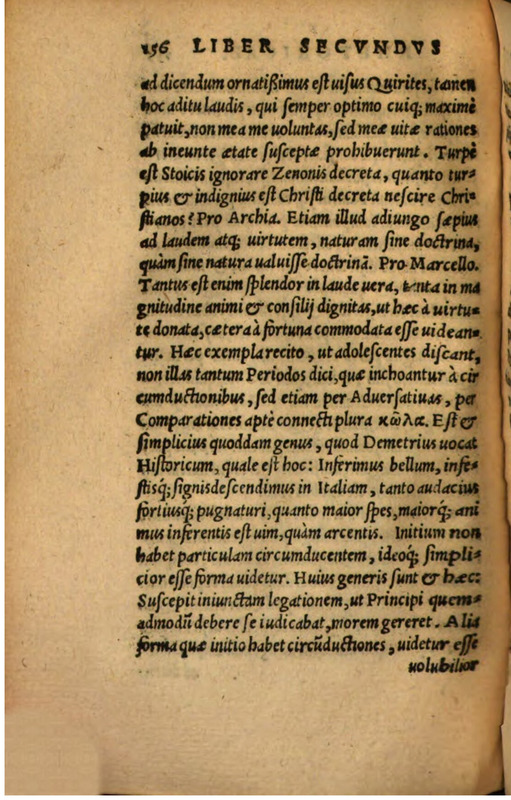 156 LIBER SECVNDVS
ad dicendum ornatißimus est uisus Quirites, tamen
hoc aditu laudis, qui semper optimo cuiq; maximè
patuit, non mea me uoluntas, sed meæ uitæ rationes
ab ineunte ætate susceptæ prohibuerunt. Turpè
est Stoicis ignorare Zenonis decreta, quanto tur-
pius & indignius est Christi decreta nescire Chri-
stianos? Pro Archia. Etiam illud adiungo sæpius
ad laudem atq; uirtutem, naturam sine doctrina,
quàm sine natura ualuisse doctrinā. Pro Marcello.
Tantus est enim splendor in laude uera, tanta in ma
gnitudine animi & consilij dignitas, ut hæc à uirtu-
te donata, cætera à fortuna commodata esse uidean-
tur. Hæc exempla recito, ut adolescentes discant,
non illas tantum Periodos dici, quæ inchoantur à cir
cumductionibus, sed etiam per Aduersatiuas, per
Comparationes aptè connecti plura κῶλα. Est &
simplicius quoddam genus, quod Demetrius uocat
Historicum, quale est hoc: Inferimus bellum, infe-
stisq; signis descendimus in Italiam, tanto audacius
fortiusq; pugnaturi, quanto maior spes, maiorq́; ani
mus inferentis est uim, quàm arcentis. Initium non
habet particulam circumducentem, ideoq́; simpli-
cior esse forma uidetur. Huius generis sunt & hæc:
Suscepit iniunctam legationem, ut Principi quem-
admodū debere se iudicabat, morem gereret. Alia
forma quæ initio habet circūductiones, uidetur esse
uolubilior